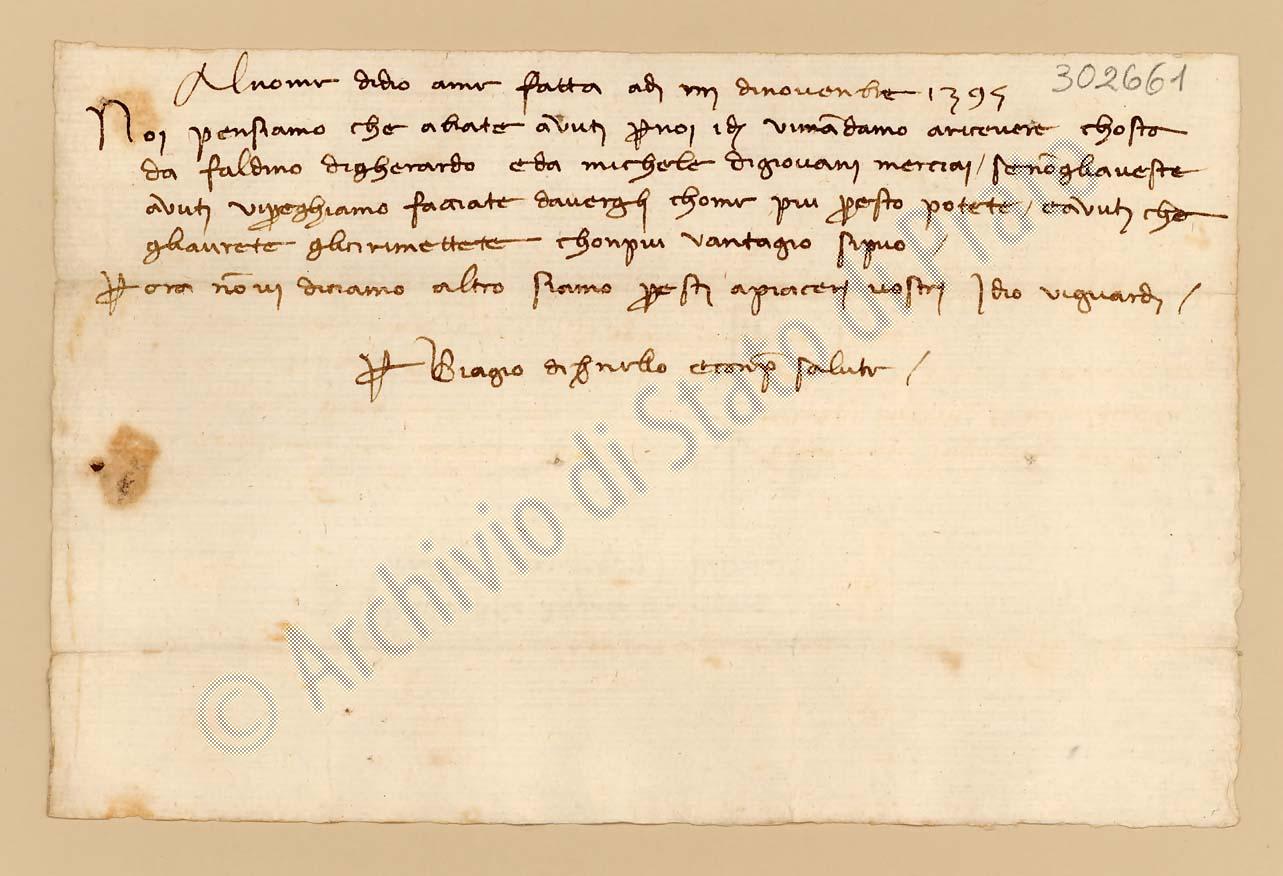 Al nome didio ame fatta adi iiii dinovenbre 1395
302661
Noi pensiamo che abiate avuti p noi i d. vimādamo aricevere chosto
da faldino digherardo e da michele digiovani merciai / senō gliaveste
avuti vipreghiamo facciate davergli chome piu presto potete / e avuti che
gliavrete glici rimettete chonpiu vantagio sipuo /
P ora nō vi diciamo altro siamo presti apiaceri vostri Idio viguardi /
P Biagio di ... e conp salute /
© Archivio di Stato di Prato